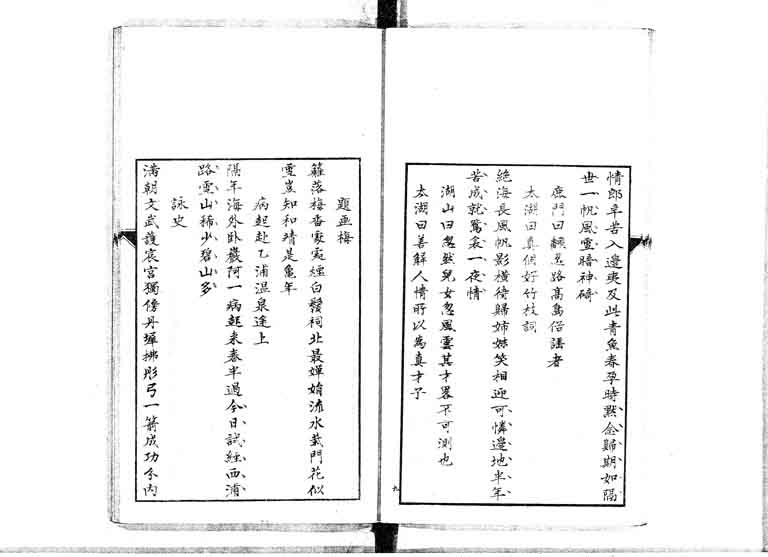 情郎辛苦入邊夷及此青魚春孕時黙念歸期如隔
世一帆風雲暗神碕
鹿門曰髣髴路高島俗謡者
太湖曰真個好竹枝詞
絶海長風帆影橫待歸姉妹笑相迎可憐邊地半年
苦成就鴛衾一夜情
湖山曰忽然兒女忽風雲其才畧不可測也
太湖曰善解人情所以為真才子
九
題画梅
籬落梅香寂寞煙白鬚祠北最嬋娟流水栽門花似
雪豈知和靖是亀年
病起赴乙浦温泉途上
隔年海外臥巖阿一病起来春半過今日試經西浦
路雲山稀少碧山多
詠史
満朝文武護宸宮獨傍丹墀拂彤弓一箭成功分内